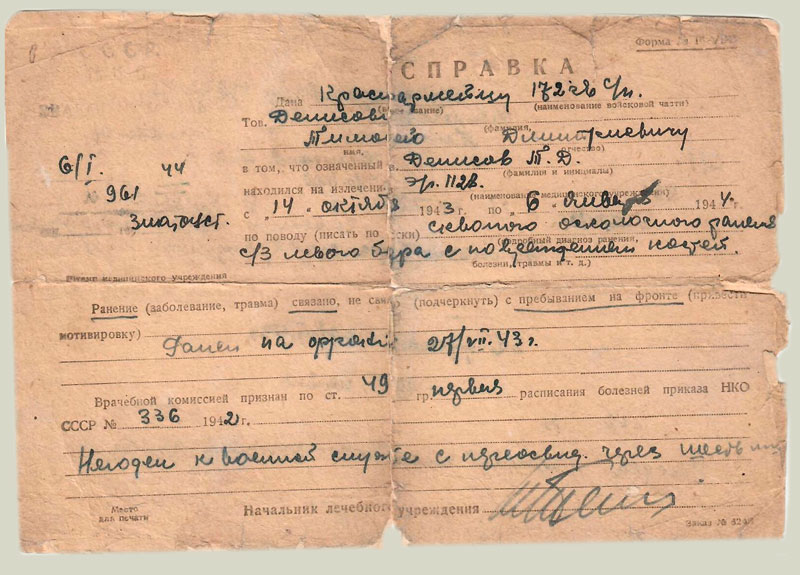 Форма №
СПРАВКА
Дана Красноармейцу 172 гв с/п.
(звание) (наименование войсковой части)
Тов. Денисову
(фамилия,
Тимофею Дмитриевичу
имя, отчество)
6/I 44
в том, что означенный Денисов Т. Д.
(фамилия и инициалы)
№ 961
находился на излечении эг. 1128.
(наименование медицинского учреждения)
Златоуст.
с „14 октября 1943 г. по „6 января 1944 г.
по поводу (писать по-русски) слепого осколочного ранения
(подробный диагноз ранения,
с/3 левого бедра с повреждением костей.
болезни, травмы и т. д.)
Штамп медицинского учреждения
Ранение (заболевание, травма) связано, не связано (подчеркнуть) с пребыванием на фронте (привести
мотивировку)
Ранен на фронте 27/VII. 43 г.
Врачебной комиссией признан по ст. 49 гр. первая расписания болезней приказа НКО
СССР № 336 1942 г.
Негоден к военной службе с переосвид. через шесть
Место
для печати
Начальник лечебного учреждения
Заказ №